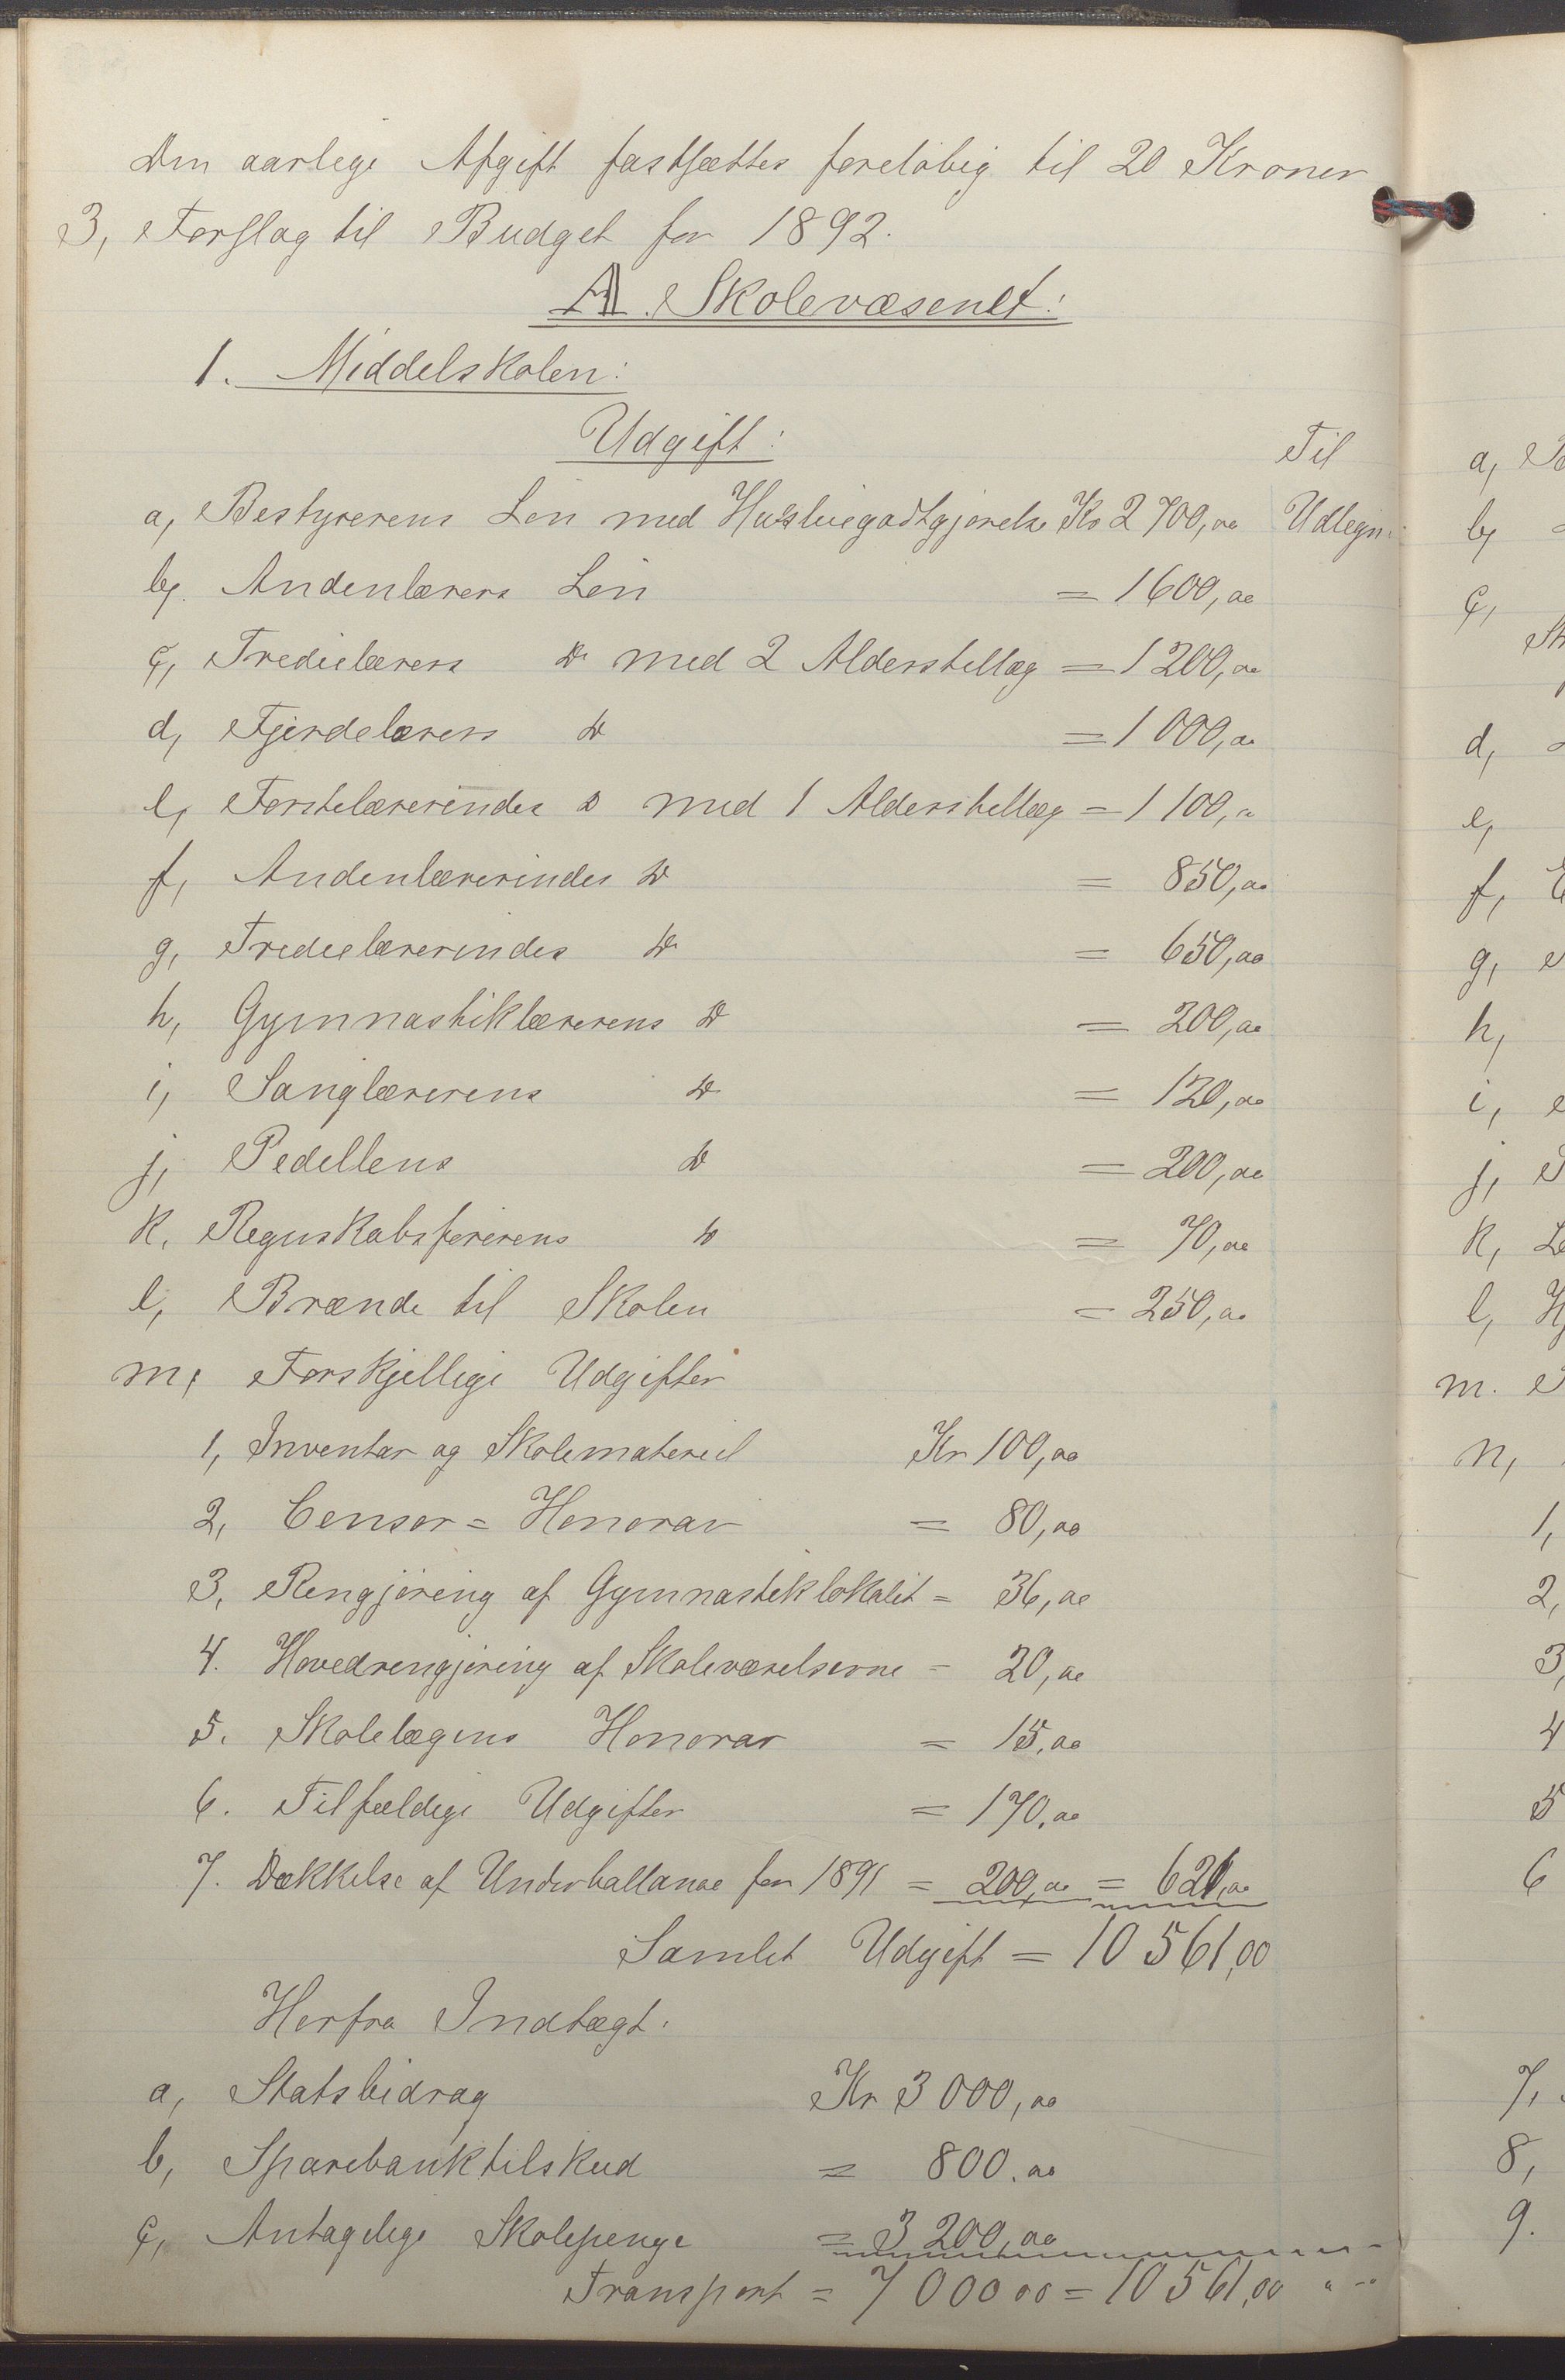 Den aarlige Afgift fastsættes foreløbig til 20 Kroner
3, Forslag til Budget for 1892.
A. Skolevæsenet:
1. Middelskolen:
Udgift:
Til
a, Bestyrerens Løn med Husleiegodtgjørelse Kr 2 700,00 Udlegn.
b, Andenlærers Løn = 1 600,00
c, Tredielærers Do med 2 Alderstillæg = 1 200,00
d, Fjerdelærers Do = 1 000,00
e, Førstelærerindes Do med 1 Alderstillæg = 1 100,00
f, Andenlærerindes Do = 850,00
g, Tredielærerindes Do = 650,00
h, Gymnastiklærerens Do = 200,00
i, Sanglærerens Do = 120,00
j, Pedellens Do = 200,00
k, Regnskabsførerens Do = 70,00
l, Brænde til Skolen = 250,00
m, Forskjellige Udgifter
1, Inventar og Skolemateriel Kr 100,00
2, Censor = Honorar = 80,00
3, Rengjøring af Gymnastiklokalet = 36,00
4. Hovedrengjøring af Skoleværelserne = 20,00
5. Skolelægens Honorar = 15,00
6. Tilfældige Udgifter = 170,00
7. Dækkelse af Underballance for 1891 = 200,00 = 621,00
Samlet Udgift = 10 561,00
Herfra Indtægt.
a, Statsbidrag Kr 3 000,00
b, Sparebanktilskud = 800.00
c, Antagelige Skolepenge = 3 200,00
Transport = 7 000 00 = 10 561,00
a,
b,
c,
d,
e,
f,
g,
h,
i,
j,
k,
l,
m.
n,
1,
2,
3,
4
5
6
7,
8,
9.